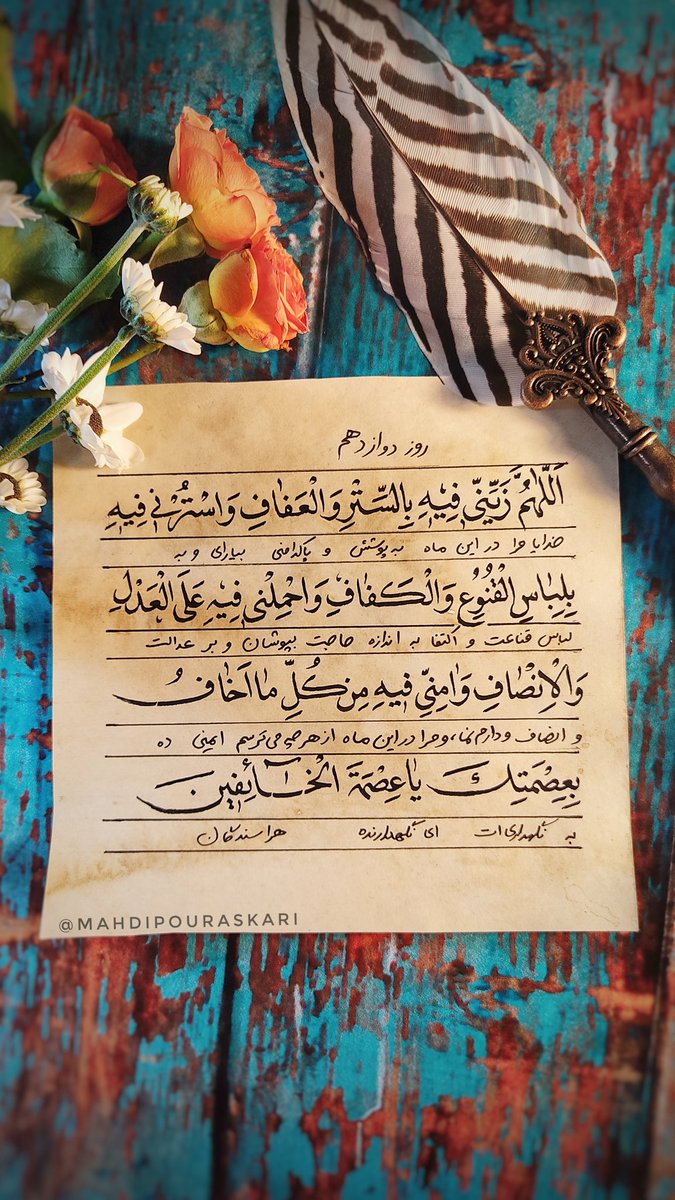 روز دوازدهم
اَللّٰهُمَّ زَیِّنّی فیٖهِ بِالسِّتْرِ وَالْعَفافِ وَاسْتُرْنی فیٖهِ
خدایا مرا در این ماه به پوشش و پاکدامنی بیارای و به
بِلِباسِ الْقُنُوعِ وَالْکَفافِ وَاحْمِلْنی فیٖهِ عَلَی الْعَدْلِ
لباس قناعت و اکتفا به اندازه حاجت بپوشان و بر عدالت
وَالْاِنْصافِ وَامِنّی فیٖهِ مِنْ کُلِّ ما اَخافُ
و انصاف وادارم نما، و مرا در این ماه از هر چه می‌ترسم ایمنی ده
بِعِصْمَتِکَ یا عِصْمَةَ الْخآئِفینَ
به نگهداری‌ات ای نگهدارنده هراسندگان
@MAHDIPOURASKARI